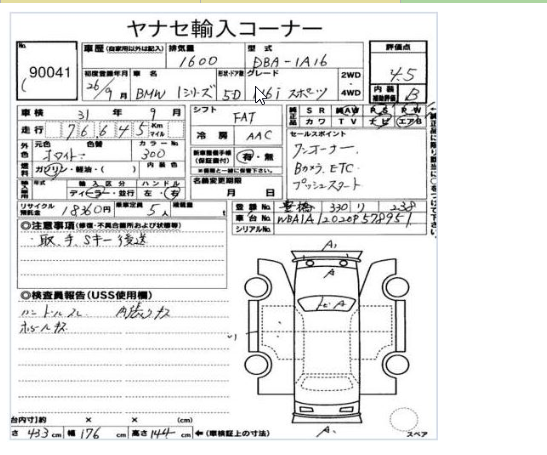 ヤナセ輸入コーナー
No. 90041
車歴 (自家用以外は記入) 排気量 1600 型式 DBA-1A16
評価点 4.5
初度登録年月 26/9月 車名 BMW 1シリーズ 形状・ドア数 5D グレード スポーツ
2WD・4WD
内装補助評価 B
車検 31年9月
シフト FAT
走行 76,645 Km マイル
冷房 AAC
純正品 SR 純AW PS PW
カワ TV ナビ エアB
外色 元色 ホワイト 色替 カラーNo. 300 内装色
燃料 ガソリン・軽油・( )
新車整備手帳 (保証書付) 有・無
セールスポイント
ワンオーナー、
Bカメラ、ETC、
プッシュスタート
輸入車用 年式 輸入区分 ディーラー・並行 ハンドル 左・右
名義変更期限 月 日
リサイクル預託金 18360円 乗車定員 5人 積載量 t
登録No. 豊橋 330 リ 238
車台No. WBA1A12020P578951
シリアルNo.
◎注意事項(修復・不具合箇所および状態等)
取、手、Sキー後送
◎検査員報告 (USS使用欄)
ハンドルスレ 内装キズ
ホイールキズ
A1
A
A
A1
スペア
台内寸)約 × × (cm)
さ 433 cm 幅 176 cm 高さ 144 cm ←(車検証上の寸法)